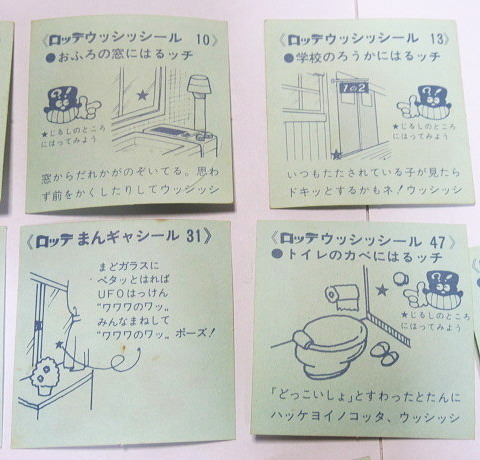 《ロッテウッシッシール 10》
●おふろの窓にはるッチ
?!
★じるしのところ
にはってみよう
窓からだれかがのぞいてる。思わ
ず前をかくしたりしてウッシッシ
《ロッテウッシッシール 13》
●学校のろうかにはるッチ
1の2
?!
★じるしのところ
にはってみよう
いつもたたされている子が見たら
ドキッとするかもネ!ウッシッシ
《ロッテまんギャシール 31》
まどガラスに
ペタッとはれば
UFOはっけん
"ワワワのワッ"
みんなまねして
"ワワワのワッ"ポーズ!
《ロッテウッシッシール 47》
●トイレのカベにはるッチ
?!
★じるしのところ
にはってみよう
「どっこいしょ」とすわったとたんに
ハッケヨイノコッタ、ウッシッシ